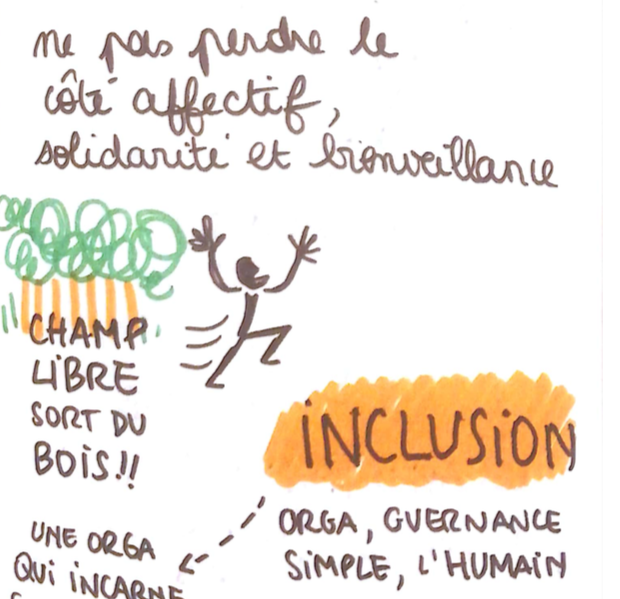 ne pas perdre le
côté affectif,
solidarité et bienveillance
CHAMP
LiBRE
SORT DU
BOiS!!
iNCLUSiON
ORGA, GVERNANCE
SiMPLE, L'HUMAiN
UNE ORGA
QUi iNCARNE